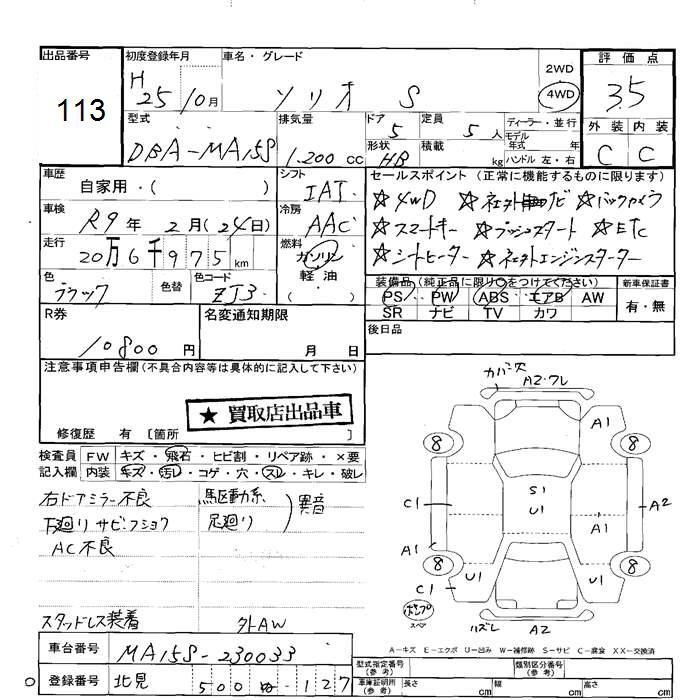 出品番号
113
初度登録年月
H 25/0月
車名・グレード
ソリオ S
2WD
4WD
評価点
3.5
外装 内装
C C
型式
DBA-MA15S
排気量
1.200 cc
ドア
5
定員
5人
ディーラー・並行
モデル
年式 年
形状
HB
積載
kg
ハンドル 左・右
車歴
自家用・( )
シフト
IAT
セールスポイント (正常に機能するものに限ります)
☆4WD ☆社外ナビ ☆バックカメラ
☆スマートキー ☆プッシュスタート ☆ETC
☆シートヒーター ☆社外エンジンスターター
車検
R9年 2月(24日)
冷房
AAC
走行
20万6千975km
燃料
ガソリン
軽油
色
ブラック
色替
色コード
ZJ3
装備品(純正品に限り○をつけてください)
PS PW ABS エアB AW
SR ナビ TV カワ
新車保証書
有・無
R券
10800円
名変通知期限
月 日
後日品
注意事項申告欄(不具合内容等は具体的に記入して下さい)
★ 買取店出品車
修復歴 有 〔箇所 〕
検査員
記入欄
FW キズ・飛石・ヒビ割・リペア跡・×要
内装 キズ・汚レ・コゲ・穴・スレ・キレ・破レ
右ドアミラー不良
下廻リ サビ・フショク
AC不良
駆動系
足廻り
異音
スタッドレス装着
外AW
カバーズ
A2・ワレ
A1
8
8
S1
U1
C1
A2
A1
A1
8
8
U1
U1
C1
ポンプ
スペア
ハズレ
A2
A-キズ E-エクボ U-凹み W-補修跡 S-サビ C-腐食 XX-交換済
車台番号
MA15S-230033
登録番号
北見 500 ゆ -127
型式指定番号
(参考)
類別区分番号
(参考)
車庫証明用
(参考)
長さ cm
幅 cm
高さ cm